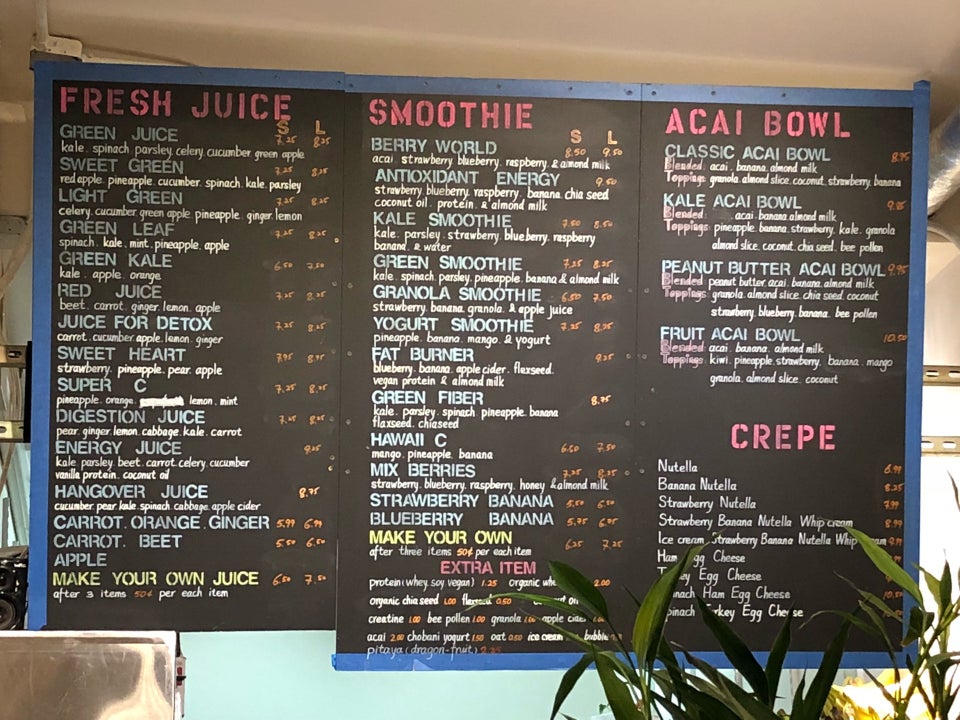 FRESH JUICE
S L
GREEN JUICE 7.25 8.25
kale. spinach parsley, celery. cucumber green apple
SWEET GREEN 7.25 8.25
red apple. pineapple. cucumber. spinach. kale. parsley
LIGHT GREEN 7.25 8.25
celery. cucumber. green apple. pineapple. ginger. lemon
GREEN LEAF 7.25 8.25
spinach. kale. mint. pineapple. apple
GREEN KALE 6.50 7.50
kale. apple. orange
RED JUICE 7.25 8.25
beet. carrot. ginger. lemon. apple
JUICE FOR DETOX 7.25 8.25
carrot. cucumber. apple. lemon. ginger
SWEET HEART 7.75 8.75
strawberry. pineapple. pear. apple
SUPER C 7.25 8.25
pineapple. orange. lemon. mint
DIGESTION JUICE 7.25 8.25
pear. ginger. lemon. cabbage. kale. carrot
ENERGY JUICE 9.25
kale. parsley. beet. carrot. celery. cucumber
vanilla protein. coconut oil
HANGOVER JUICE 8.75
cucumber. pear. kale. spinach. cabbage. apple cider
CARROT. ORANGE. GINGER 5.99 6.99
CARROT. BEET 5.50 6.50
APPLE
MAKE YOUR OWN JUICE 6.50 7.50
after 3 items 50¢ per each item
SMOOTHIE
S L
BERRY WORLD 8.50 9.50
acai. strawberry. blueberry. raspberry. & almond milk
ANTIOXIDANT ENERGY 9.50
strawberry. blueberry. raspberry. banana. chia seed
coconut oil. protein. & almond milk
KALE SMOOTHIE 7.50 8.50
kale. parsley. strawberry. blueberry. raspberry
banana. & water
GREEN SMOOTHIE 7.25 8.25
kale. spinach. parsley. pineapple. banana & almond milk
GRANOLA SMOOTHIE 6.50 7.50
strawberry. banana. granola. & apple juice
YOGURT SMOOTHIE 7.25 8.25
pineapple. banana. mango. & yogurt
FAT BURNER 9.25
blueberry. banana. apple cider. flexseed.
vegan protein & almond milk
GREEN FIBER 8.75
kale. parsley. spinach. pineapple. banana
flaxseed. chiaseed
HAWAII C 6.50 7.50
mango. pineapple. banana
MIX BERRIES 7.25 8.25
strawberry. blueberry. raspberry. honey & almond milk
STRAWBERRY BANANA 5.50 6.50
BLUEBERRY BANANA 5.75 6.75
MAKE YOUR OWN 6.25 7.25
after three items 50¢ per each item
EXTRA ITEM
protein (whey. soy vegan) 1.25 organic 2.00
organic chia seed 1.00 0.50
creatine 1.00 bee pollen 1.00 granola 1.00 apple
acai 2.00 chobani yogurt 1.50 oat 0.50 ice cream bubble
pitaya (dragon-fruit) 2.25
ACAI BOWL
CLASSIC ACAI BOWL 8.75
Blended: acai. banana. almond milk
Toppings: granola. almond slice. coconut. strawberry. banana
KALE ACAI BOWL
Blended: acai. banana. almond milk
Toppings: pineapple. banana. strawberry. kale. granola
almond slice. coconut. chia seed. bee pollen
PEANUT BUTTER ACAI BOWL 9.95
Blended: peanut butter. acai. banana. almond milk
Toppings: granola. almond slice. chia seed. coconut
strawberry. blueberry. banana. bee pollen
FRUIT ACAI BOWL 10.50
Blended: acai. banana. almond milk
Toppings: kiwi. pineapple. strawberry. banana. mango
granola. almond slice. coconut
CREPE
Nutella 6.99
Banana Nutella 8.25
Strawberry Nutella 7.99
Strawberry Banana Nutella Whip cream 8.99
Ice cream Strawberry Banana Nutella Whip
Ham Egg Cheese
Egg Cheese
Ham Egg Cheese
Egg Cheese